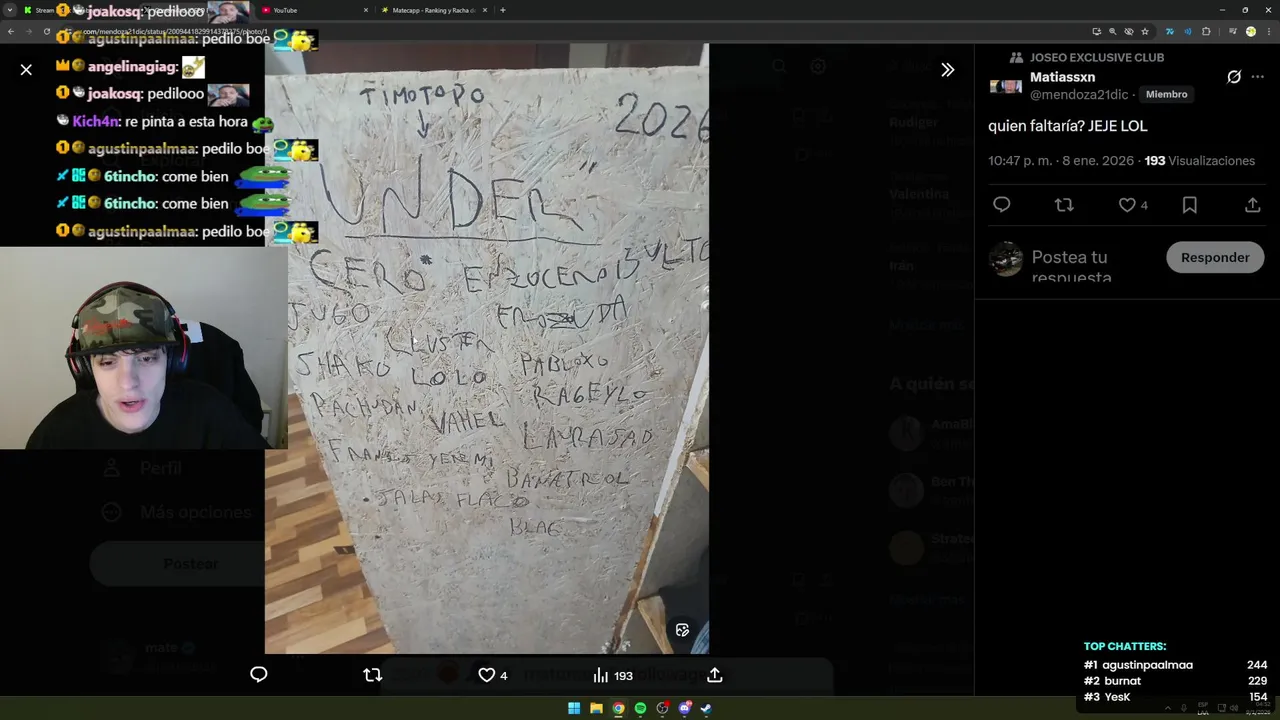 YouTube
Matecapp - Ranking y Racha d
com/mendoza21dic/status/2009441829914373579/photo/1
joakosq: pedilooo
agustinpaalmaa: pedilo boe
angelinagiag:
joakosq: pedilooo
Kich4n: re pinta a esta hora
agustinpaalmaa: pedilo boe
6tincho: come bien
6tincho: come bien
agustinpaalmaa: pedilo boe
Perfil
Más opciones
Postear
TIMOTOPO
2026
UNDER
CERO*
JUGO
CLUSTER
SHAKO
LOLO
PABLOXO
PACHUDAN
VAHEL
RAGEYLO
LAURASAD
YEREMI
JALAS FLACO
BLAG
193
4
JOSEO EXCLUSIVE CLUB
Matiassxn
@mendoza21dic · Miembro
quien faltaría? JEJE LOL
10:47 p. m. · 8 ene. 2026 · 193 Visualizaciones
4
Postea tu respuesta
Responder
Rudiger
Valentina
Irán
TOP CHATTERS:
#1 agustinpaalmaa 244
#2 burnat 229
#3 YesK 154